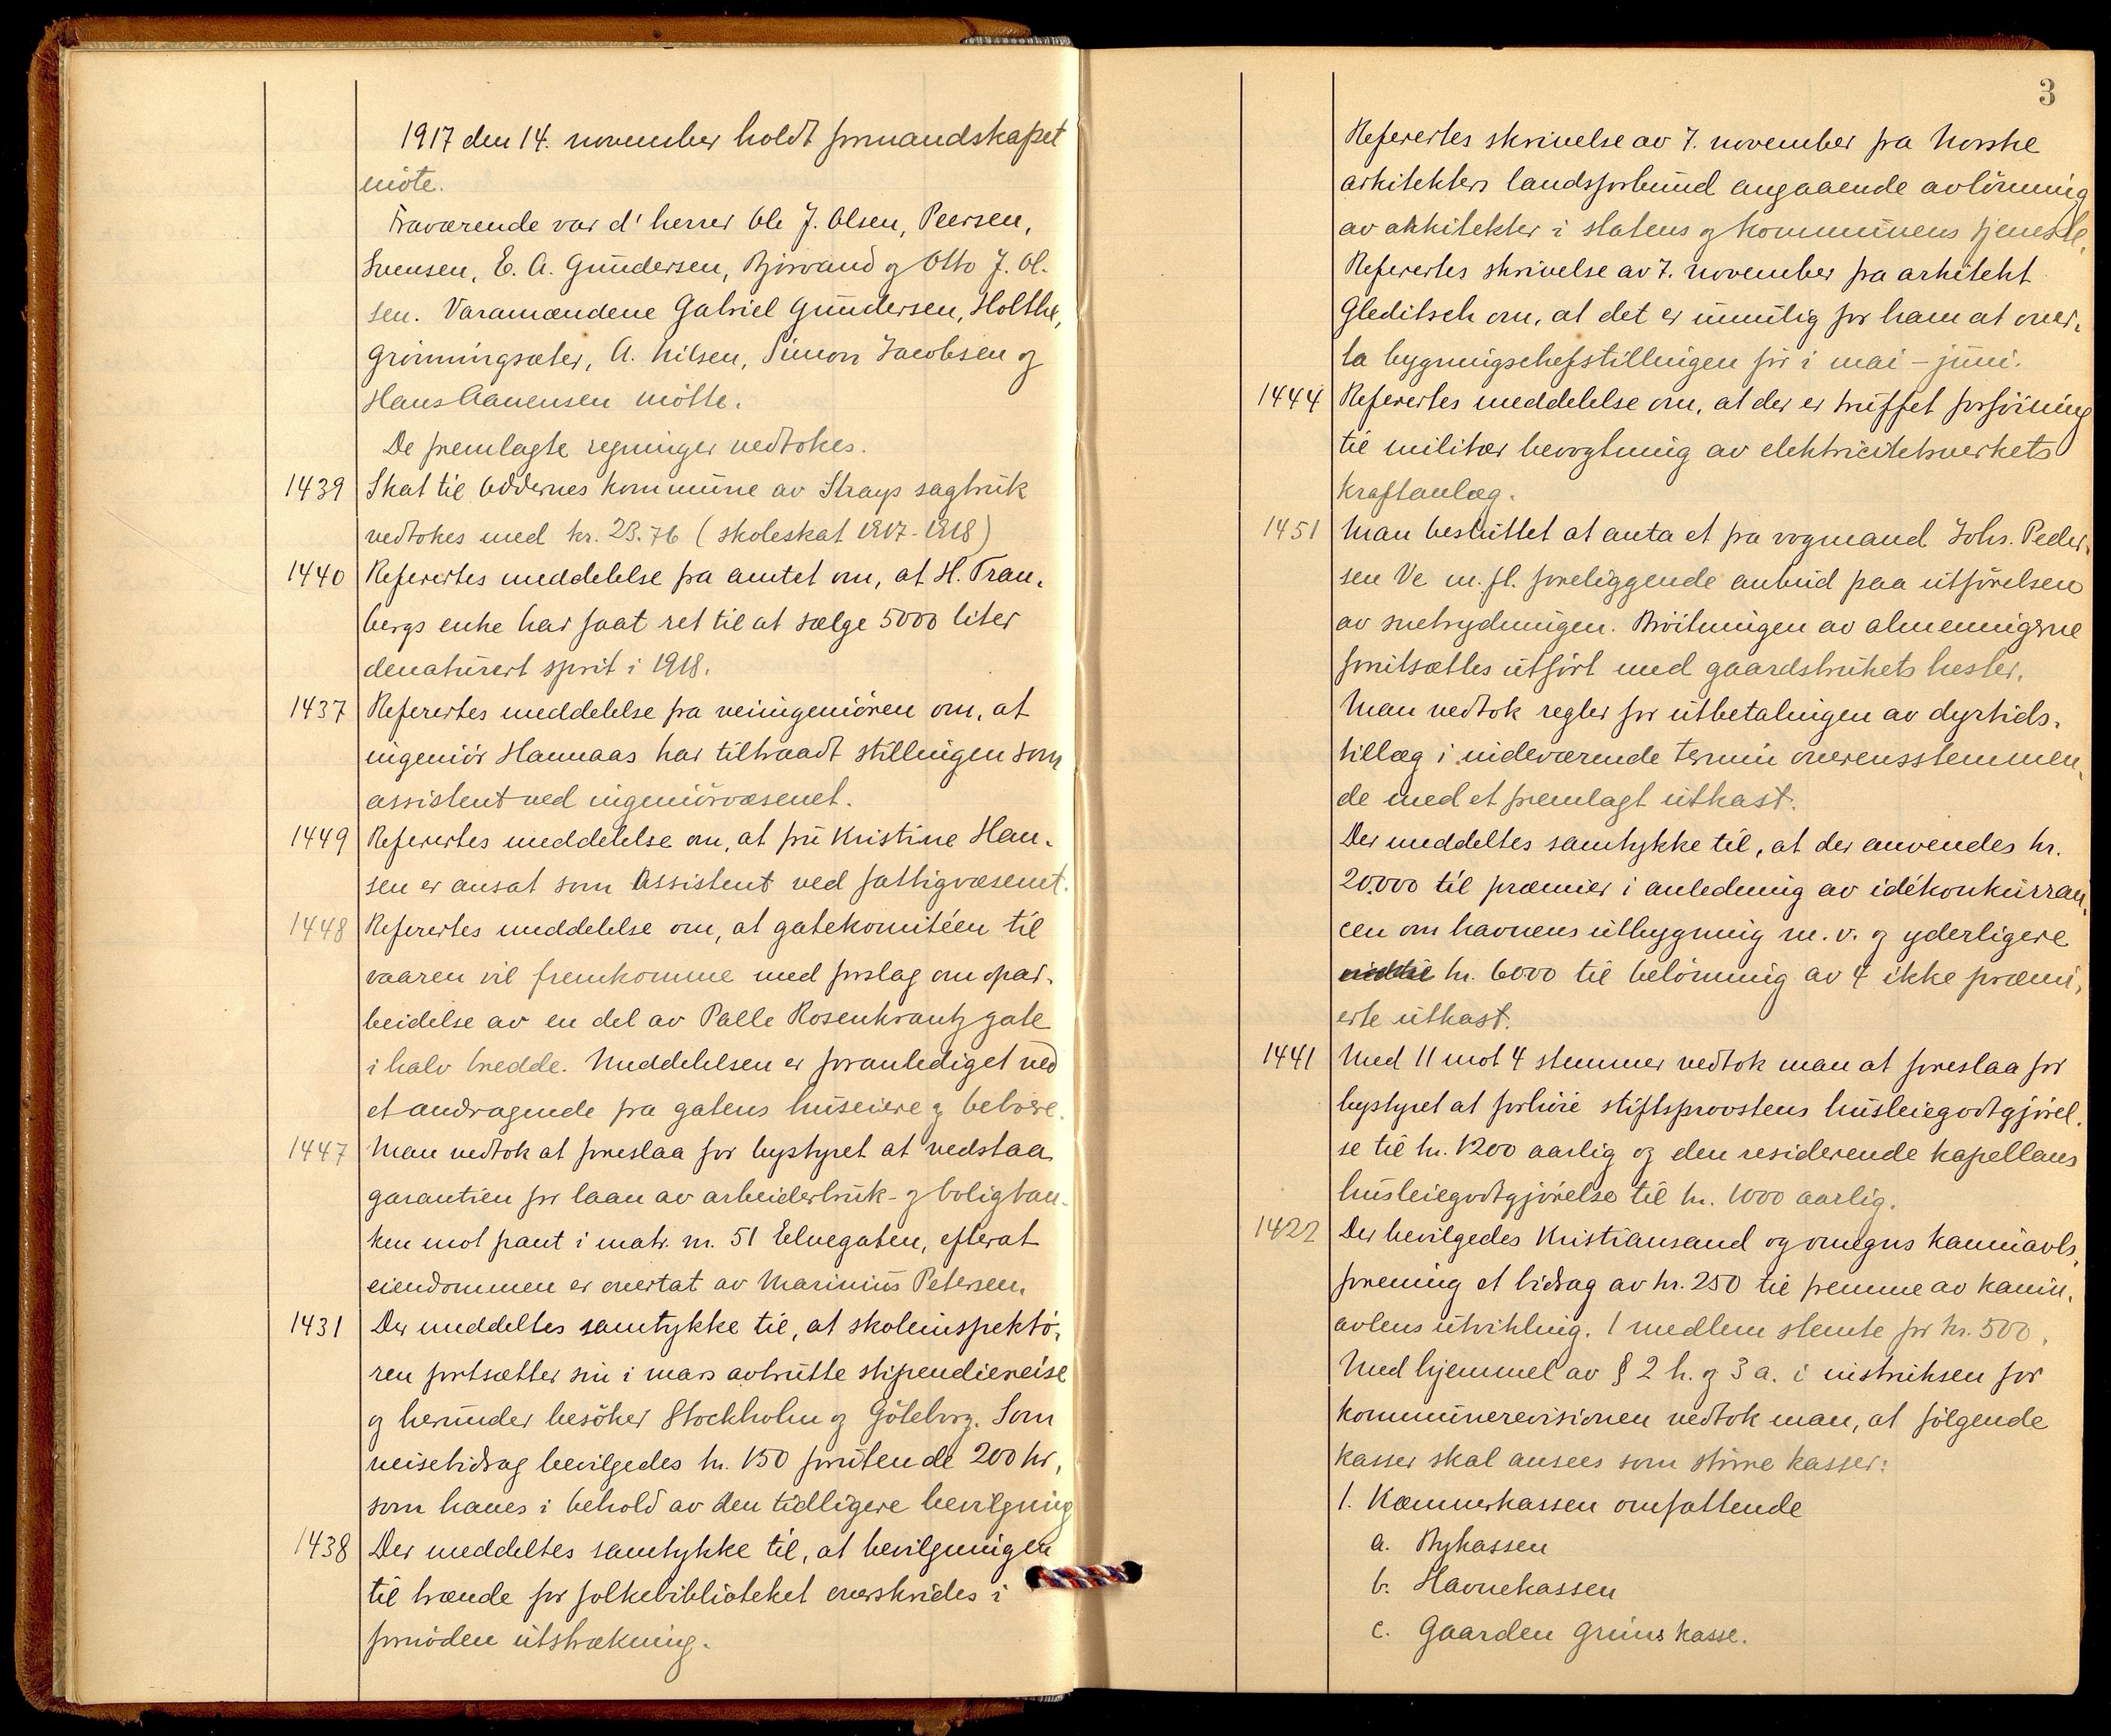 1917 den 14. november holdt formandskapet
møte.
Fraværende var d'herrer Ole J. Olsen, Peersen,
Svensen, E. A. Gundersen, Bjorvand og Otto J. Ol-
sen. Varamændene Gabriel Gundersen, Holthe,
Grønningsæter, A. Nilsen, Simon Jacobsen og
Hans Aanensen møtte.
De fremlagte regninger vedtokes.
1439 Skat til Oddernes kommune av Strays sagbruk
vedtokes med kr. 23.76 (skoleskat 1917-1918)
1440 Refertes meddelelse fra amtet om, at H. Tran-
bergs enke har faat ret til at sælge 5000 liter
denaturert sprit i 1918.
1437 Refertes meddelelse fra veiingeniøren om, at
ingeniør Hannaas har tiltraadt stillingen som
assistent ved ingeniørvæsenet.
1449 Refertes meddelelse om, at fru Kristine Han-
sen er ansat som Assistent ved fattigvæsenet.
1448 Refertes meddelelse om, at gatekomitéen til
vaaren vil fremkomme med forslag om opar-
beidelse av en del av Palle Rosenkrantz gate
i halv bredde. Meddelelsen er foranlediget ved
et andragende fra gatens huseiere og beboere.
1447 Man vedtok at foreslaa for bystyret at vedstaa
garantien for laan av arbeiderbruk- og boligban-
ken mot pant i matr. nr. 51 Elvegaten, efterat
eiendommen er overtat av Marinius Petersen.
1431 Der meddeltes samtykke til, at skoleinspektø-
ren fortsætter sin i mars avbrutte stipendiereise
og herunder besøker Stockholm og Göteborg. Som
reisebidrag bevilgedes kr. 150 foruten de 200 kr,
som haves i behold av den tidligere bevilgning
1438 Der meddeltes samtykke til, at bevilgningen
til brænde for folkebiblioteket overskrides i
fornøden utstrækning.
3
Refertes skrivelse av 7. november fra Norske
arkitekters landsforbund angaaende avlønning
av arkitekter i statens og kommunens tjeneste.
Refertes skrivelse av 7. november fra arkitekt
Gleditsch om, at det er umulig for ham at over-
ta bygningschefstillingen før i mai – juni.
1444 Refertes meddelelse om, at der er truffet forføining
til militær bevogtning av elektricitetsverkets
kraftanlæg.
1451 Man besluttet at anta et fra vogmand Johs. Peder-
sen Ve m. fl. foreliggende anbud paa utførelsen
av snebrydningen. Brøitningen av almenningerne
forutsættes utført med gaardsbrukets hester.
Man vedtok regler for utbetalingen av dyrtids-
tillæg i indeværende termin overensstemmen-
de med et fremlagt utkast.
Der meddeltes samtykke til, at der anvendes kr.
20.000 til præmier i anledning av idékonkurran-
cen om havnens utbygning m. v. og yderligere
kr. 6000 til belønning av 4 ikke præmi-
erte utkast.
1441 Med 11 mot 4 stemmer vedtok man at foreslaa for
bystyret at forhøie stiftsprovstens husleiegodtgjørel-
se til kr. 1200 aarlig og den residerende kapellans
husleiegodtgjørelse til kr. 1000 aarlig.
1422 Der bevilgedes Kristiansand og omegns kaninavls-
forening et bidrag av kr. 250 til fremme av kanin-
avlens utvikling. 1 medlem stemte for kr. 500.
Med hjemmel av § 2 h. og 3 a. i instruksen for
kommunerevisionen vedtok man, at følgende
kasser skal ansees som større kasser:
1. Kæmnerkassen omfattende
a. Bykassen
b. Havnekassen
c. Gaarden Grims kasse.